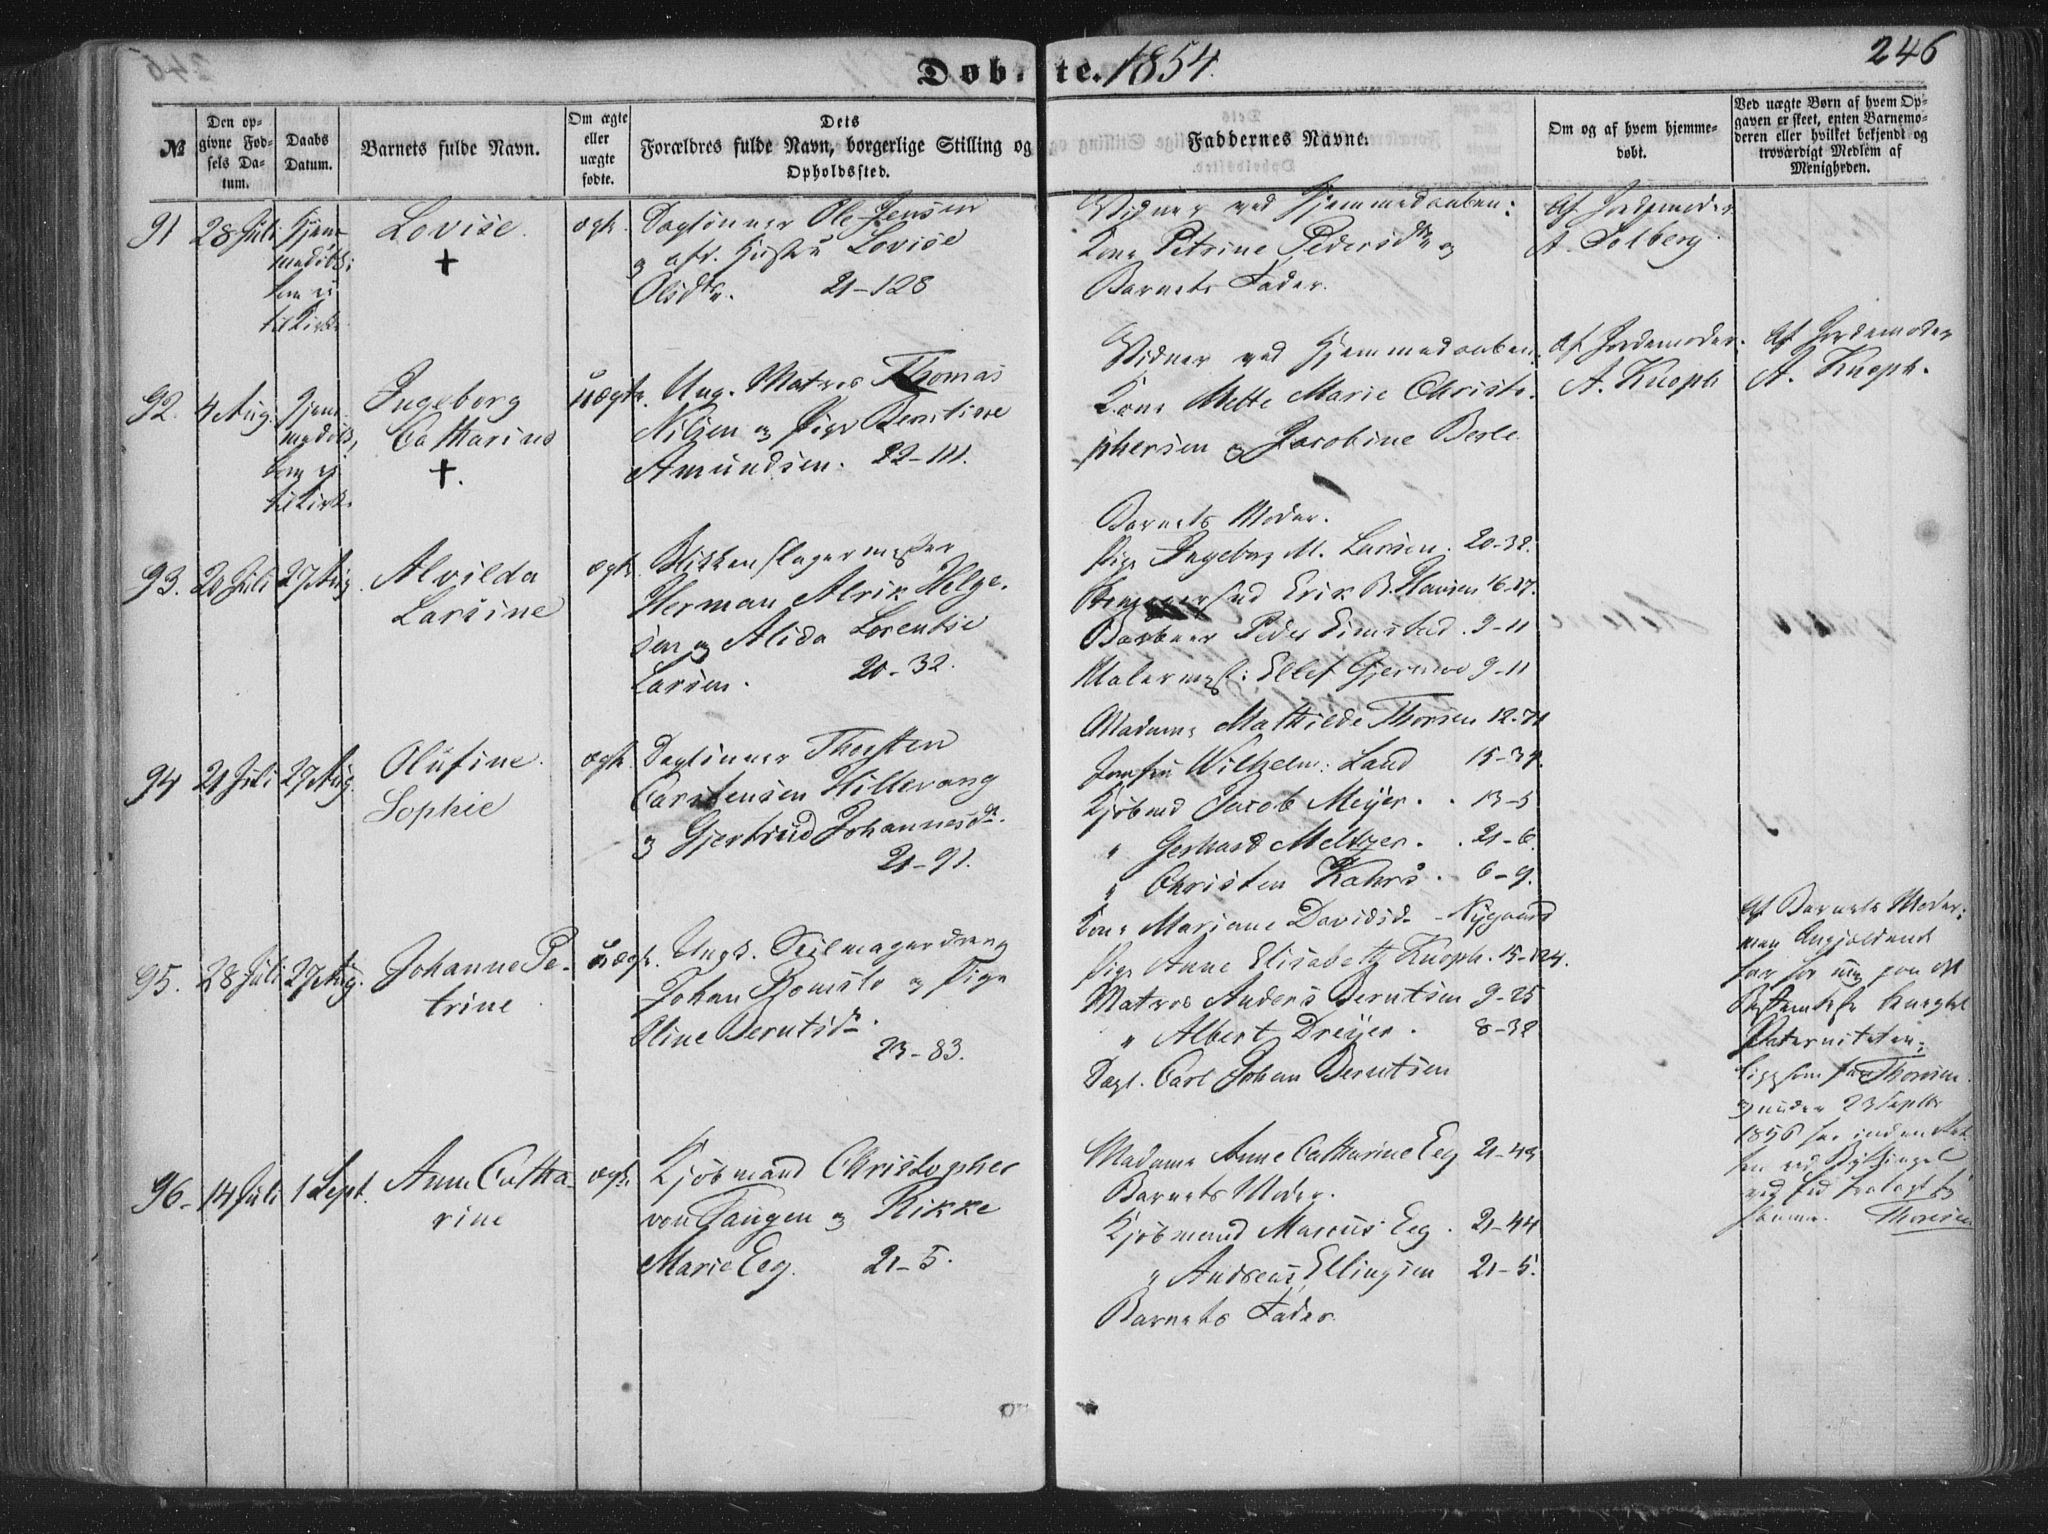 Døbte. 1854.
246
№
Den opgivne Fødsels Datum.
Daabs Datum.
Barnets fulde Navn.
Om ægte eller uægte fødte.
Dets Forældres fulde Navn, borgerlige Stilling og Opholdssted.
Faddernes Navne.
Om og af hvem hjemmedøbt.
Ved uægte Børn af hvem Opgaven er skeet, enten Barnemoderen eller hvilket bekjendt og troværdigt Medlem af Menigheden.
91
28 Juli
Hjemmedøbt;
kom ei
til Kirke
Lovise.
+
ægte.
Dagleinner Ole Jensen
og afd. Hustru Lovise
Olsdtr. 21-128
Vidner ved Hjemmedaaben:
Kone Petrine Pedersdtr og
Barnets Fader.
Af Jordemoder
A. Solberg.
92.
4 Aug.
Hjemmedøbt,
kom ei
til Kirke
Ingeborg
Catharine
+.
uægte.
Ung. Matros Thomas
Nilsen og Pige Berntine
Amundsen. 22-111.
Vidner ved Hjemmedaaben
Kone Mette Marie Christophersen og Jacobine Berle.
af Jordemoder
A. Knoph
Af Jordemoder
A. Knoph.
93.
20 Juli
27 Aug.
Alvilda
Larsine
ægte
Blikkenslagermester
Herman Alrik Helgesen og Alida Lorentse
Larsen. 20-32.
Barnets Moder.
Pige Ingeborg M. Larsen. 20-32.
Erik B. Hansen 16-27.
Peder Eimstad. 9-11
Malermest: Ellef Gjermoe 9-11
94
21 Juli
27 Aug.
Olufine
Sophie
ægte.
Dagleinner Thorsten
Carstensen Hillevang
og Gjertrud Johannesdr.
21-91.
Madame Mathilde Thorsen 12-71
Jomfru Wilhelm: Laud 15-34.
Kjøbmd Jacob Meyer. 13-5
" Gerhard Meltzer. 21-6.
" Christen Kahrs. 6-9.
95.
28 Juli
27 Aug.
Johanne Petrine
uægte.
Ungk. Seilmagerdreng
Johan Bømslo og Pige
Oline Berntsdr.
23-83.
Kone Mariane Davidsdr Nygaard
Pige Anne Elisabeth Knoph. 15-124.
Matros Anders Berntsen 9-25
" Albert Dreyer. 8-32
Dagl. Carl Johan Berntsen
Af Barnets Moder:
men Angjældende
har for mig paa det
Bestemteste benegtet
Paterniteten;
Thorsen.
under 23 Septbr
1856 har
ved
ved Ed fralagt sig
samme. Thorsen
96.
14 Juli
1 Sept.
Anne Catharine
ægte
Kjøbmand Christopher
von Tangen og Rikke
Marie Eeg. 21-5.
Madame Anne Catharine Eeg 21-43
Barnets Moder.
Kjøbmand Marcus Eeg. 21-44
" Andreas Ellingsen 21-5.
Barnets Fader.